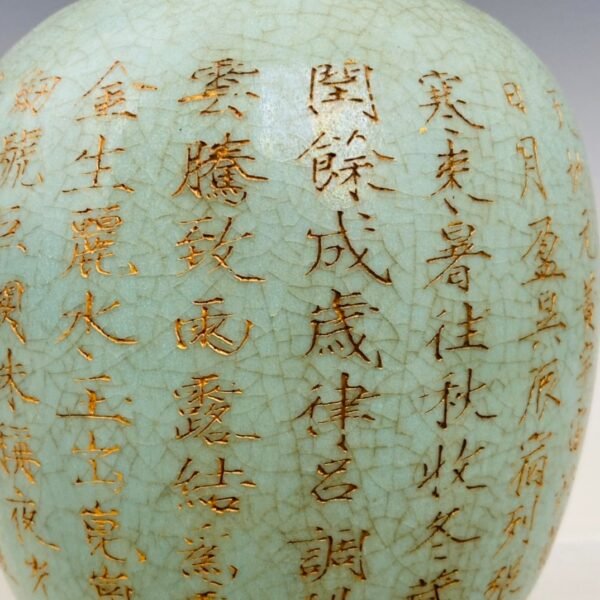 天地元黃宇宙
日月盈昃辰宿列張
寒來暑往秋收冬藏
閏餘成歲律呂調
雲騰致雨露結為
金生麗水玉出崑
劍號巨闕珠稱夜光